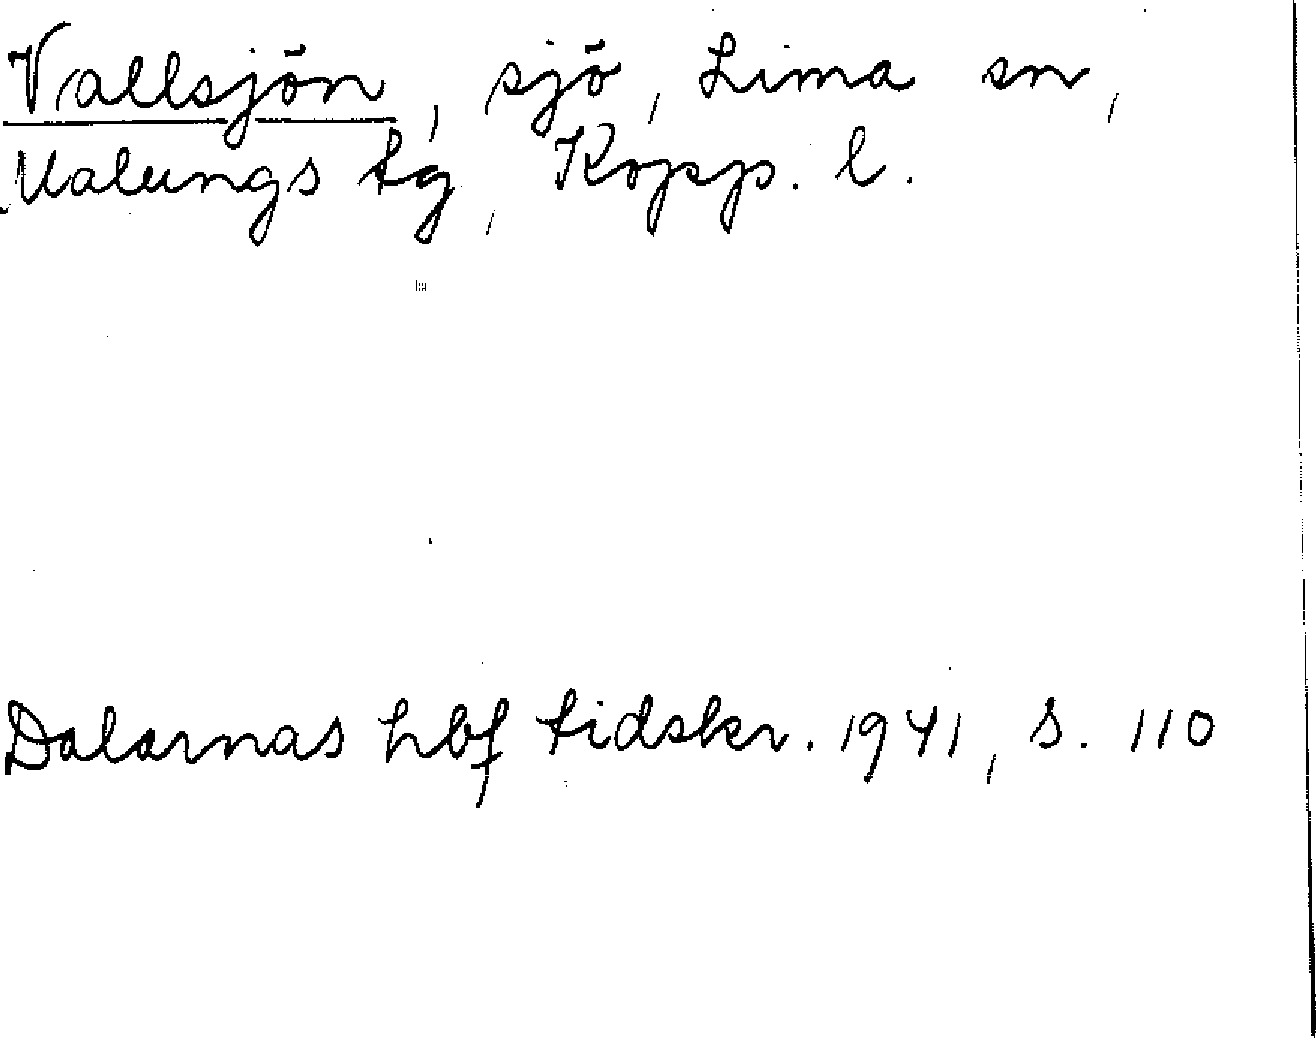 Vallsjön, sjö, Lima sn,
Malungs tg, Kopp. l.
Dalarnas hbf tidskr. 1941, s. 110